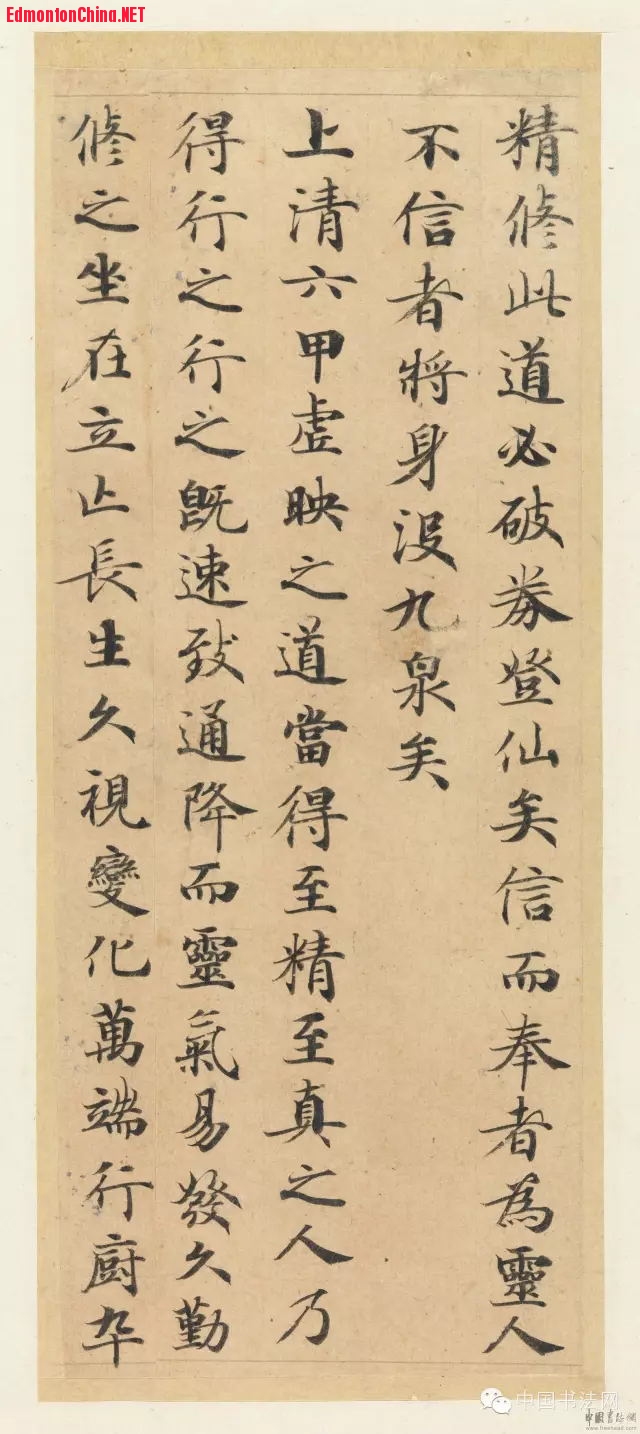 EdmontonChina.NET
精修此道必破券登仙矣信而奉者為靈人
不信者將身沒九泉矣
上清六甲虛映之道當得至精至真之人乃
得行之行之既速致通降而靈氣易發久勤
修之坐在立亡長生久視變化萬端行廚卒
中国书法网
中國書法網